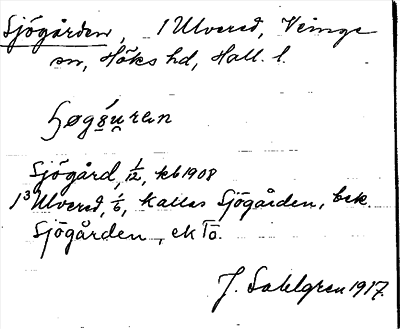 Sjögården, 1 Ulvered, Veinge
sn, Höks hd, Hall. l.
Sjögård, 1/12, kb 1908
1³ Ulvered, 1/6, kallas Sjögården, bek.
Sjögården, ek To.
J. Sahlgren 1917.